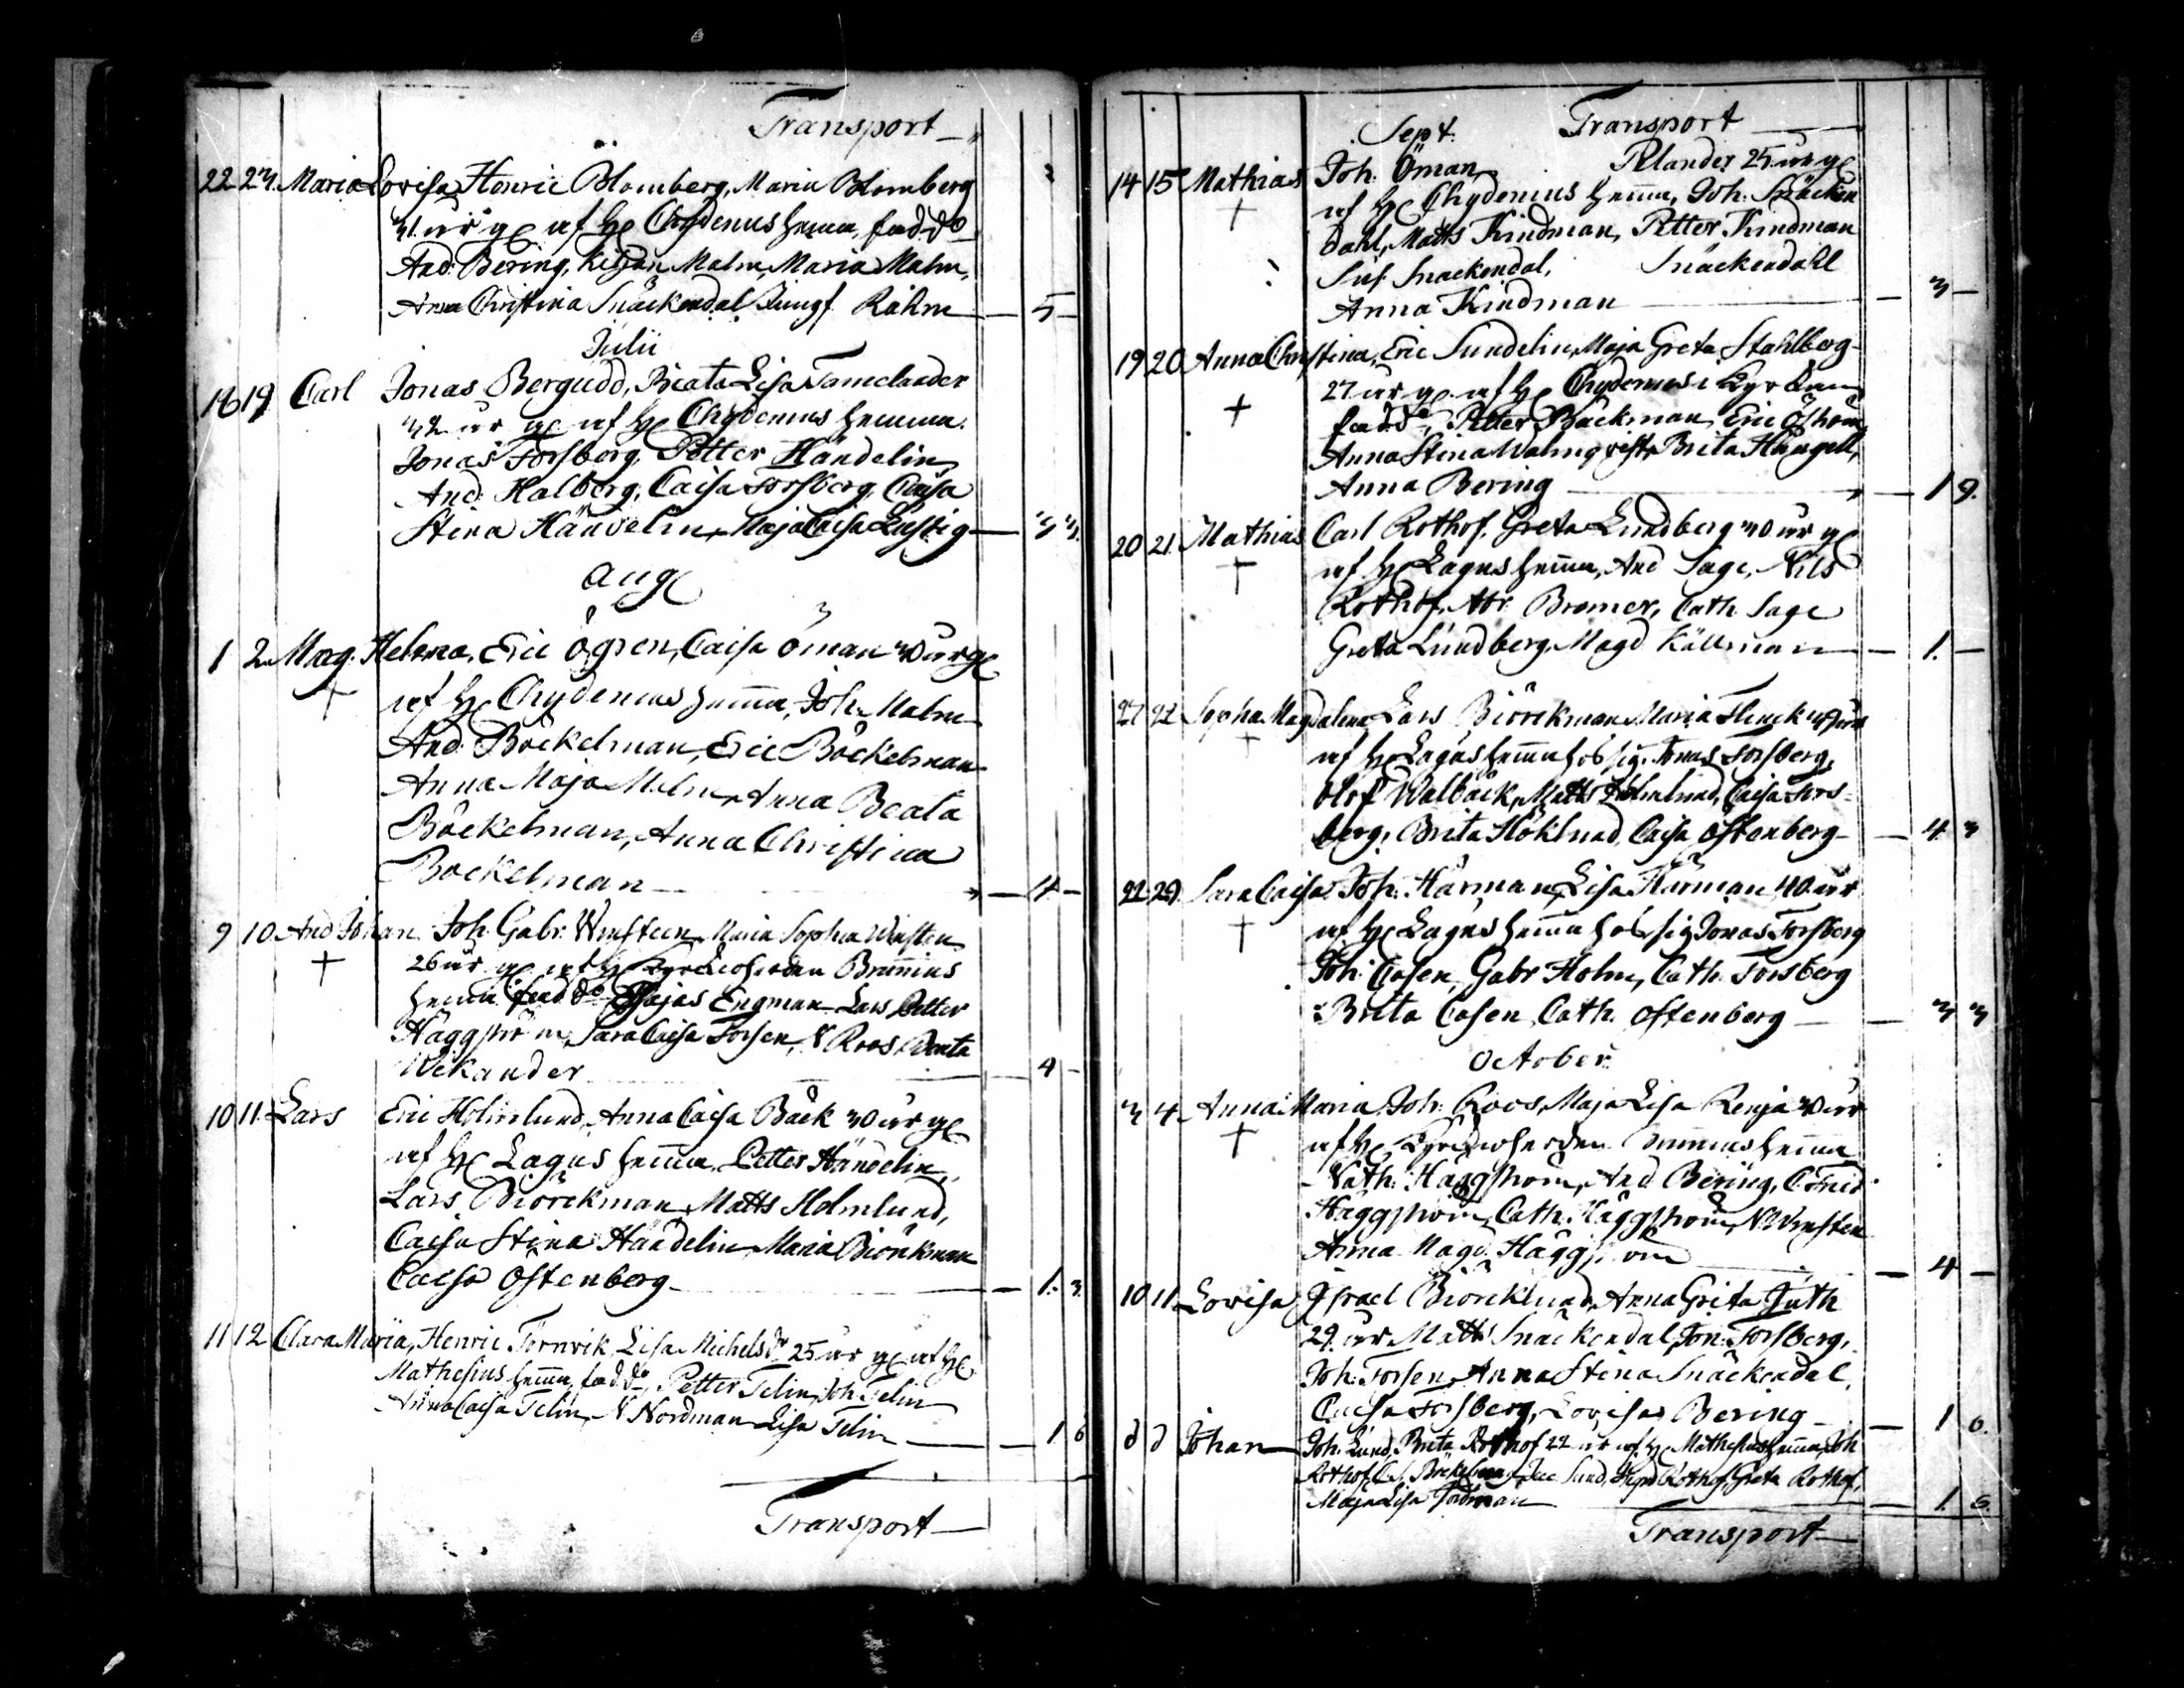 Transport
22 23. Maria Lovisa Henric Blomberg, Maria Blomberg
31. år g. af H. Chydenius hemma, fadd.
And. Bering, Malm, Maria Malm,
Anna Christina Snäckendal Jungf. Rahm — 5 —
Julii
18 19 Carl Jonas Bergudd, Beata Lisa Tamelander
32 år g. af H. Chydenius hemma.
Jonas Forsberg, Petter Händelin
And. Halberg, Caisa Forsberg, Caisa
Stina Händelin, Maja Caisa Lustig — 3 3.
Aug
1 2. Mag: Helena, Eric Ögren, Caisa Öman 30 år g.
af H. Chydenius hemma, Joh. Malm
And. Böckelman, Eric Böckelman
Anna Maja Malm, Anna Beata
Böckelman, Anna Christina
Bockelman — 4 —
9 10. And Johan Joh. Gabr. Winsteen Maria Sophia Winsten
26 år g. af H. Brunnius
hemma fadd. Esajas Engman Lars Petter
Häggström, Sara Caisa Forsen, N Roos, Beata
Wikander — 4 —
10 11. Lars Eric Holmlund, Anna Caisa Back 30 år g.
af H. Lagus hemma, Petter Händelin,
Lars Biörckman, Matts Holmlund,
Caisa Stina Händelin, Maria Biörckman
Caisa Ostenberg — 1. 3.
11 12 Clara Maria, Henric Törnvik Lisa Michelsdr. 25 år g. af H.
Mathesius hemma, fadd. Petter Telin, Joh. Telin
Anna Caisa Telin, N Nordman Lisa Telin — 1 6
Transport
Sept. Transport
14 15 Mathias Joh. Öman, Relander 25 år g.
af H. Chydenius hemma, Joh. Snäcken
dahl, Matts Kindman, Petter Kindman
Sus. Snackendal, Snäckendahl
Anna Kindman — 3 —
19 20 Anna Christina, Eric Sundelin, Maja Greta Stahlberg
27 år g. af H. Chydenius i Kyrckan
fadd. Petter Backman, Eric Öström
Anna Stina Malmqvist, Brita
Anna Bering — 1 9.
20 21. Mathias Carl Rothof, Greta Lundberg 30 år g.
af H. Lagus hemma, And Sage, Nils
Rothof, Abr. Bromer, Cath Sage
Greta Lundberg, Magd Källman — 1. —
21 22 Sopha Magdalena Lars Biörckman Maria Flinck
af H. Lagus hemma hos sig. Jonas Forsberg,
Olof Walback, Matts Holmlund, Caisa Fors-
berg, Brita Höklund, Caisa Ostenberg — 4. 3
22 29. Sara Caisa Joh. Härman, Lisa Härman 40 år
af H. Lagus hemma hos sig Jonas Forsberg
Joh. Casen, Gabr Holm, Cath. Forsberg
Brita Casen, Cath. Ostenberg — 3 3
October
3 4 Anna Maria Joh. Roos, Maja Lisa Renja 30 år
af H. Brunnius hemma
Nath. Häggström, And Bering,
Häggström, Cath. Häggström, N Winsten
Anna Magd. Häggström — 4 —
10 11 Lovisa Israel Biörcklund, Anna Greta Juth
29 år. Matts Snäckendal, Jon. Forsberg,
Joh. Forsen, Anna Stina Snäckendal,
Caisa Forsberg, Lovisa Bering — 1 6.
d d Johan Joh. Lund, Brita Rothof 22 år af H. Mathesius hemma, Joh
Rothof, Böckelman, Lund, Rothof, Greta Rothof,
Maja Lisa — 1. 6.
Transport